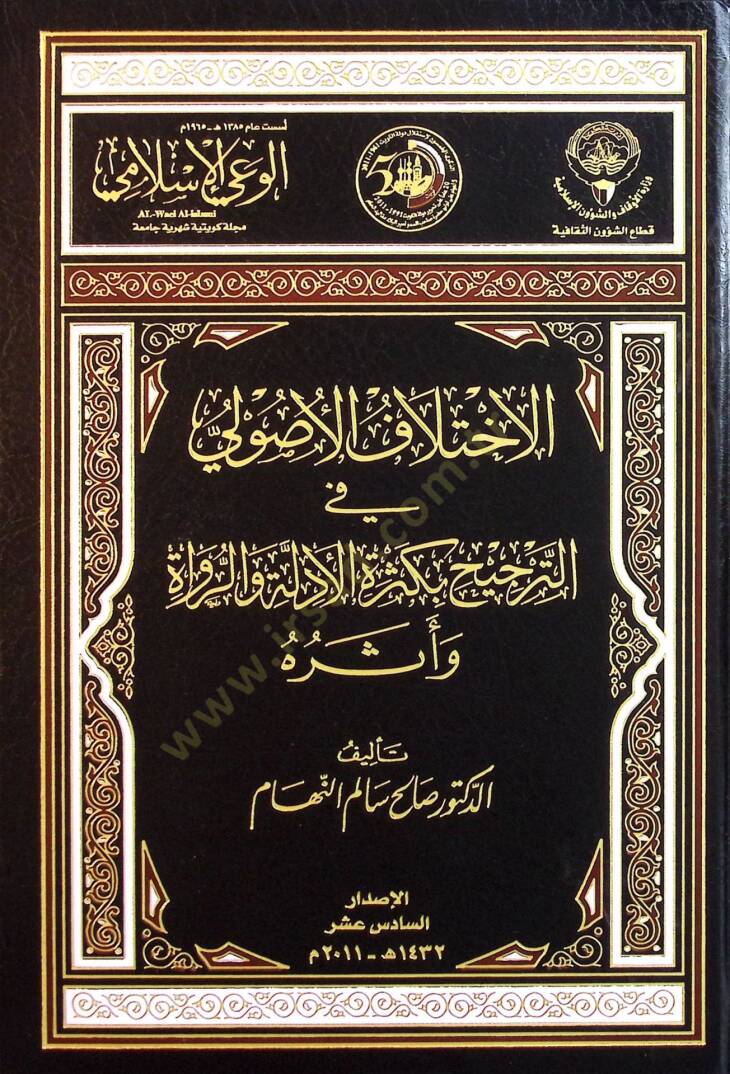 أسست عام ١٣٨٥ هـ - ١٩٦٥ م
الوعي الإسلامي
AL-Waei Al-Islami
مجلة كويتية شهرية جامعة
50
وزارة الأوقاف والشؤون الإسلامية
قطاع الشؤون الثقافية
الاِخْتِلَافُ الأُصُولِيُّ
في
التَّرْجِيحِ بِكَثْرَةِ الأَدِلَّةِ وَالرُّوَاةِ
وَأَثَرُهُ
تأليفُ
الدكتور صالح سالم النهام
الإصدار
السادس عشر
١٤٣٢هـ - ٢٠١١م